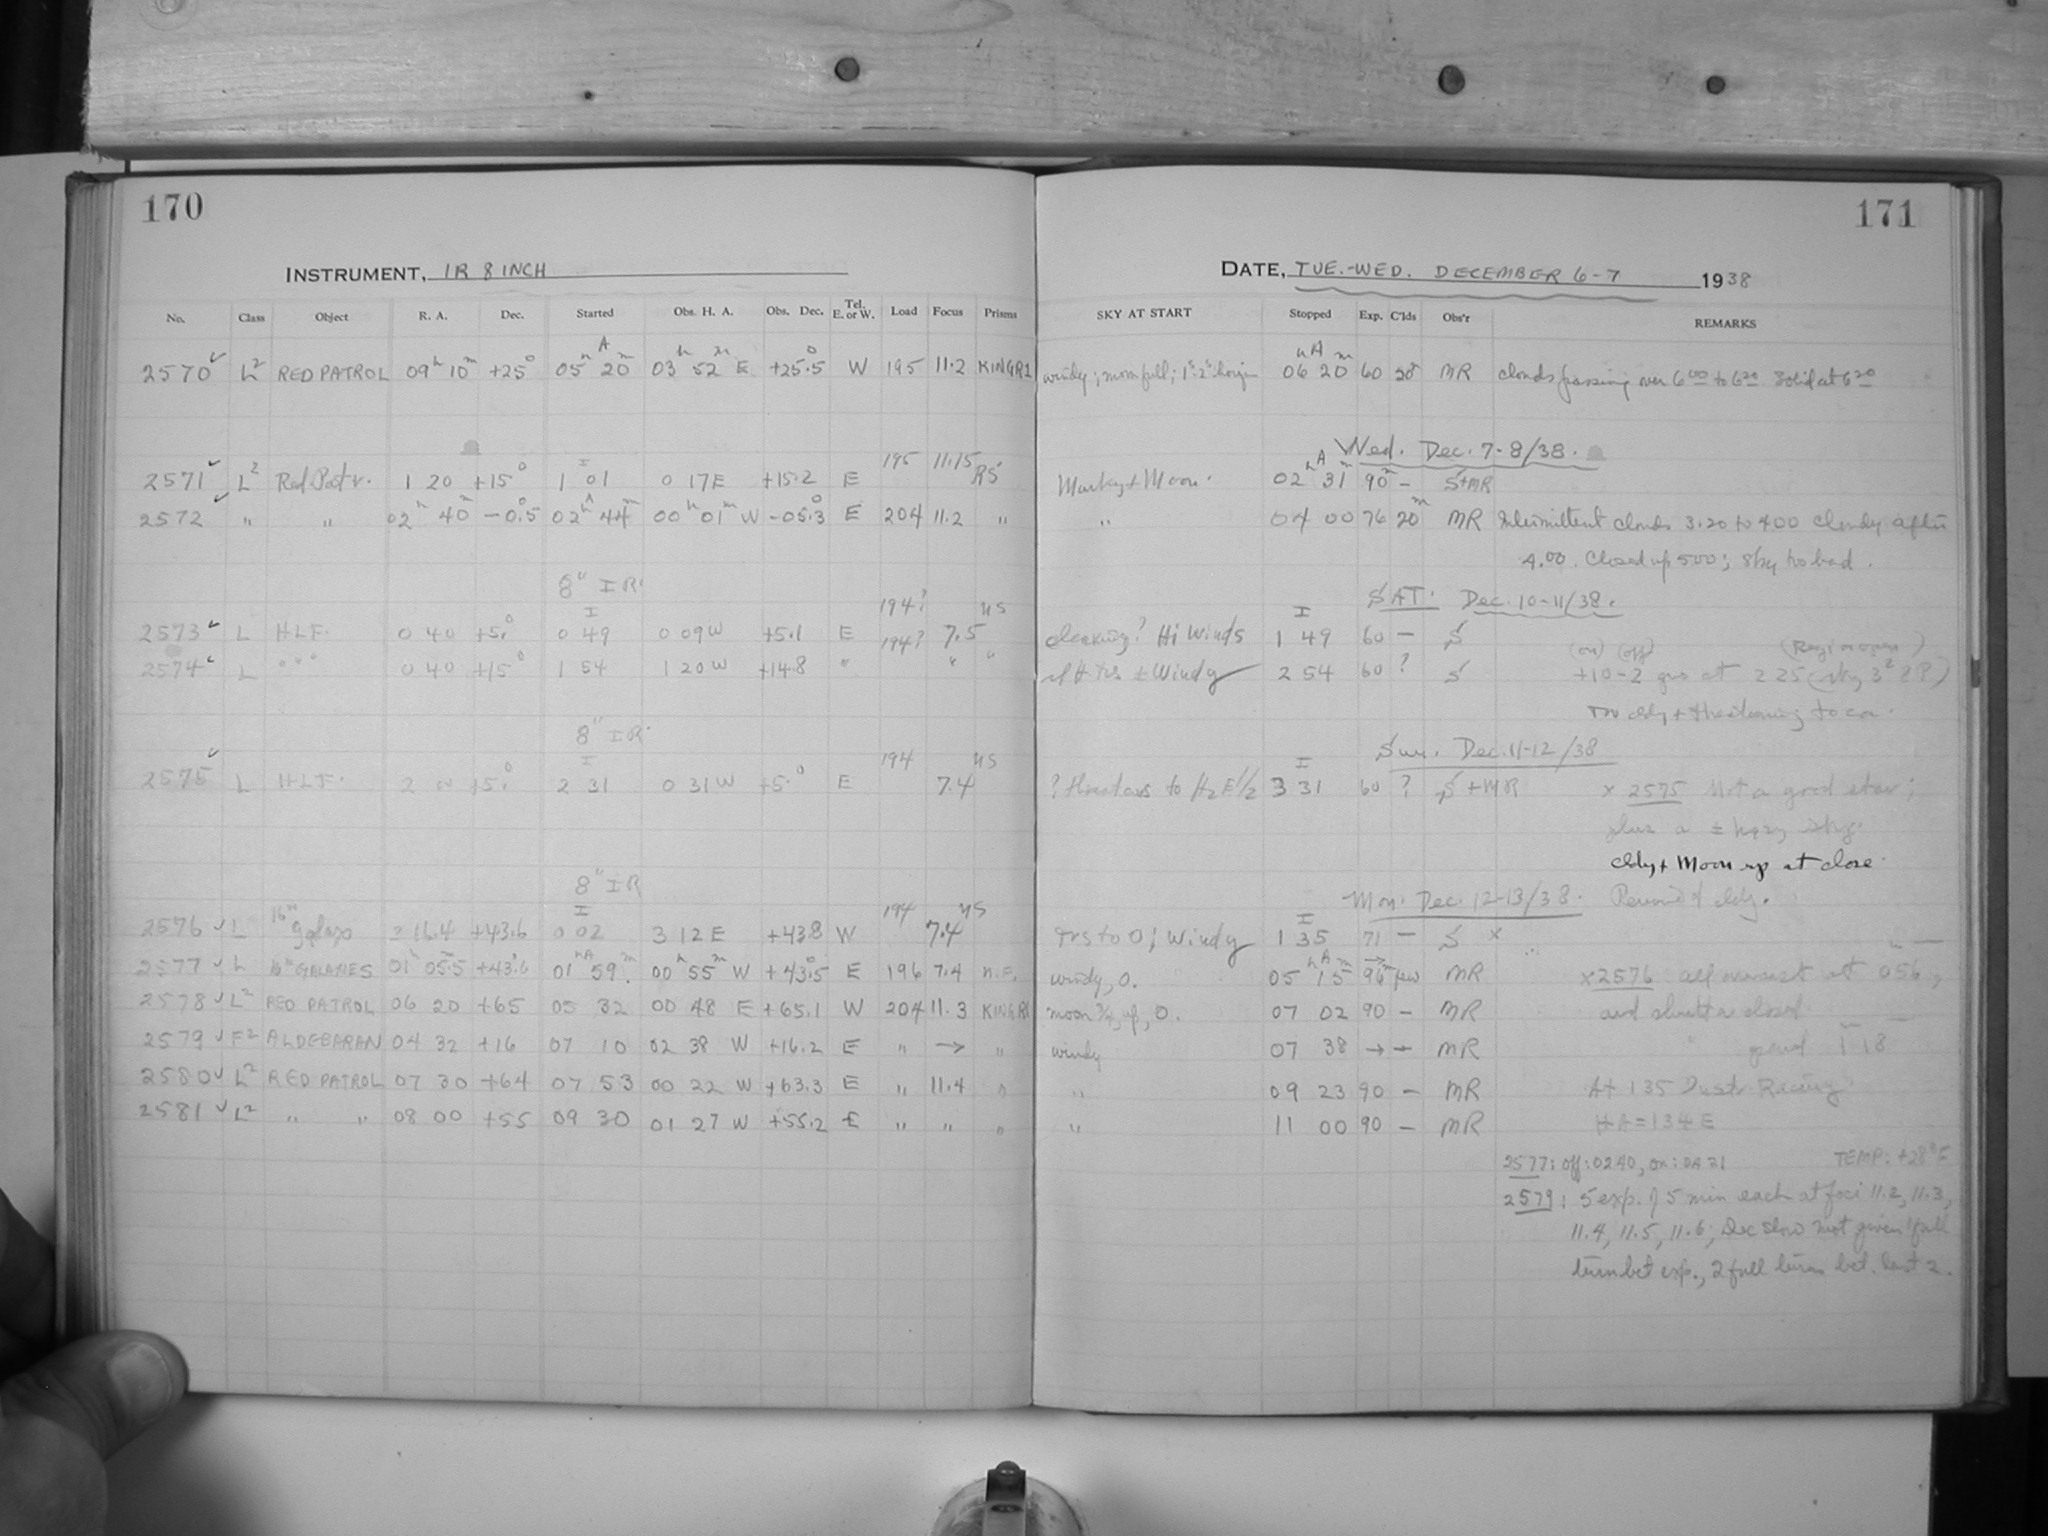 170
171
INSTRUMENT, IR 8 INCH
DATE, TUE.-WED. DECEMBER 6-7 1938
No. Class Object R. A. Dec. Started Obs. H. A. Obs. Dec. Tel. E. or W. Load Focus Prisms SKY AT START Stopped Exp. C'lds Obs'r REMARKS
2570 L2 RED PATROL 09h 10m +25° 05h A 20m 03h 52m E +25.5° W 195 11.2 KINGR1 windy; moon full; 06h A 20m 60 MR clouds passing over 6 00 to 6 20 Solid at 6 20
Wed. Dec. 7-8/38.
2571 L2 Red Patr. 1 20 +15° I 1 01 0 17 E +15.2 E 195 11.15 RS Murky + Moon. 02h A 31m 90m - S+MR
2572 " " 02h 40m -0.5° 02h A 44m 00h 01m W -05.3° E 204 11.2 " " 04 00 76 20m MR Intermittent clouds 3.20 to 4.00 cloudy after
4.00. Closed up 500; Sky too bad.
8" IR.
SAT. Dec. 10-11/38.
2573 L HLF. 0 40 +5.° I 0 49 0 09 W +5.1 E 194? 7.5 ns clearing? Hi Winds I 1 49 60 - S
(on) (off)
2574 L " " " 0 40 +15° 1 54 1 20 W +14.8 " 194? " " ± Windy 2 54 60 ? S +10-2 at 2 25
cldy + threatening to
8" IR.
Sun. Dec. 11-12/38
2575 L HLF. 2 +5.° I 2 31 0 31 W +5.° E 194 7.4 ns ? to I 3 31 60 ? S + MR x 2575 Not a good star;
plus a ± hazy sky.
cldy + Moon up at close.
8" IR
Mon. Dec. 12-13/38. of cldy.
2576 L 16" galaxs ± 16.4 +43.6 I 0 02 3 12 E +43.8 W 194 7.4 ns to 0; Windy I 1 35 71 - S x
2577 L 16" GALAXIES 01h 05.5m +43.6° 01h A 59m 00h 55m W +43.5° E 196 7.4 n.F. windy, 0. 05h A 15m 96 few MR x2576 at 056,
2578 L2 RED PATROL 06 20 +65 05 32 00 48 E +65.1 W 204 11.3 KINGR1 moon 3/4, up, 0. 07 02 90 - MR and shutter closed
2579 F2 ALDEBARAN 04 32 +16 07 10 02 38 W +16.2 E " → " windy 07 38 → - MR
2580 L2 RED PATROL 07 30 +64 07 53 00 22 W +63.3 E " 11.4 " " 09 23 90 - MR At 135
2581 L2 " " 08 00 +55 09 30 01 27 W +55.2 E " " " " 11 00 90 - MR HA = 134 E
2577: off: 0240, on: 0421 TEMP: +28°F
2579: 5 exp. of 5 min each at foci 11.2, 11.3,
11.4, 11.5, 11.6; Dec slow not given 1 full
turn bet exp., 2 full turns bet. last 2.